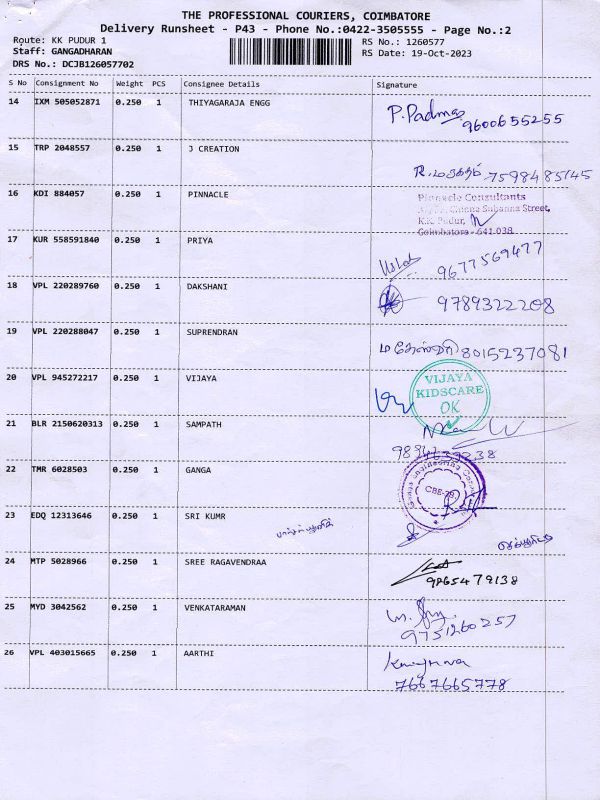 THE PROFESSIONAL COURIERS, COIMBATORE
Delivery Runsheet - P43 - Phone No.:0422-3505555 - Page No.:2
Route: KK PUDUR 1 RS No.: 1260577
Staff: GANGADHARAN RS Date: 19-Oct-2023
DRS No.: DCJB126057702
S No Consignment No Weight PCS Consignee Details Signature
14 IXM 505052871 0.250 1 THIYAGARAJA ENGG P. Padma 9600655255
15 TRP 2048557 0.250 1 J CREATION
R. 7598485145
16 KDI 884057 0.250 1 PINNACLE Pinnacle Consultants
Chinna Subanna Street,
K.K. Pudur,
Coimbatore - 641 038
17 KUR 558591840 0.250 1 PRIYA
9677569477
18 VPL 220289760 0.250 1 DAKSHANI 9789322208
19 VPL 220288047 0.250 1 SUPRENDRAN
மகேஸ்வரி 8015237081
20 VPL 945272217 0.250 1 VIJAYA VIJAYA
KIDSCARE
OK
21 BLR 2150620313 0.250 1 SAMPATH
22 TMR 6028503 0.250 1 GANGA
CBE-29
23 EDQ 12313646 0.250 1 SRI KUMR
24 MTP 5028966 0.250 1 SREE RAGAVENDRAA
9865479138
25 MYD 3042562 0.250 1 VENKATARAMAN
9751260257
26 VPL 403015665 0.250 1 AARTHI
7667665778